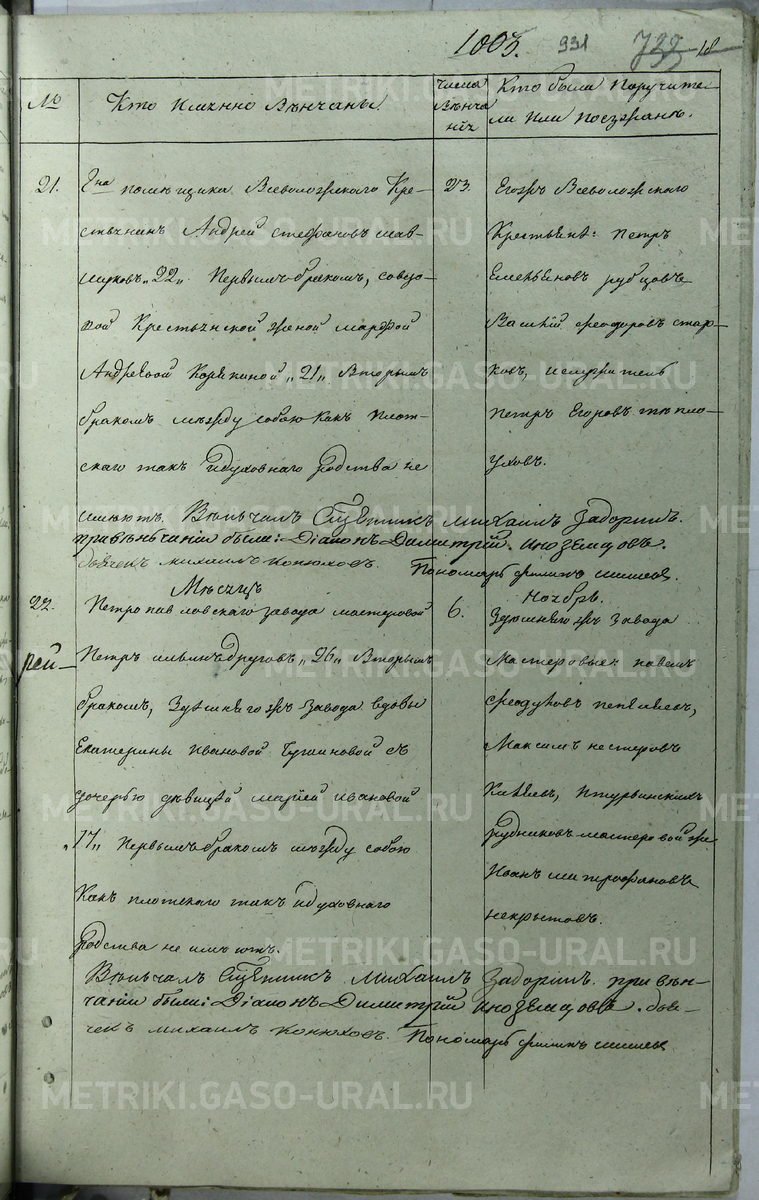 1003. 931 18
№
Кто Именно Вѣнчаны.
Числа Вѣнча нїѧ
Кто были Поручите-
ли Или Посзжанѣ.
21. Гна помѣщика Всеволожскаго Кре-
стьянин Андрей стефановъ шав-
„22„ Первымъ бракомъ, совдо-
вой Крестьянской женой марфой
Андреевой „21„ Вторымъ
бракомъ между собою какъ плот-
скаго такъ идуховнаго родства не
имѣютъ. Вѣнчалъ Священникъ михаилъ Задоринъ.
привѣнчаніи были: Діаконъ Димитрій Иноземцовъ.
дьячекъ михаилъ конюховъ. Пономарь филипъ шишевъ
23. Егожъ Всеволожскаго
Крестьяне: петръ
Емельяновъ рубцовъ
Василій феодоровъ стар-
ковъ, ислужитель
петръ Егоровъ тепло-
уховъ.
Мѣсяцъ Ноябрь.
22. Петропавловскаго завода мастеровой
Петръ ильинъ друговъ „26„ Вторымъ
бракомъ, Здѣшнягожъ завода вдовы
Екатерины Ивановой съ
дочерью дѣвицей марией ивановой
„17„ Первымъ бракомъ между собою
Какъ плотскаго такъ идуховнаго
родства не имѣютъ.
Вѣнчалъ Священникъ Михаилъ Задоринъ. при вѣн-
чаніи были: Діаконъ Димитрій Иноземцовъ. дья-
чекъ михаилъ конюховъ. Пономарь филипъ шишевъ
6. Здѣшнягожъ завода
Мастеровыя павелъ
феодуловъ
Максимъ нестеровъ
Китяевъ, Птурьинскихъ
рудниковъ мастеровой же
Иванъ митрофановъ
некрытовъ.
рей-
METRIKI.GASO-URAL.RU